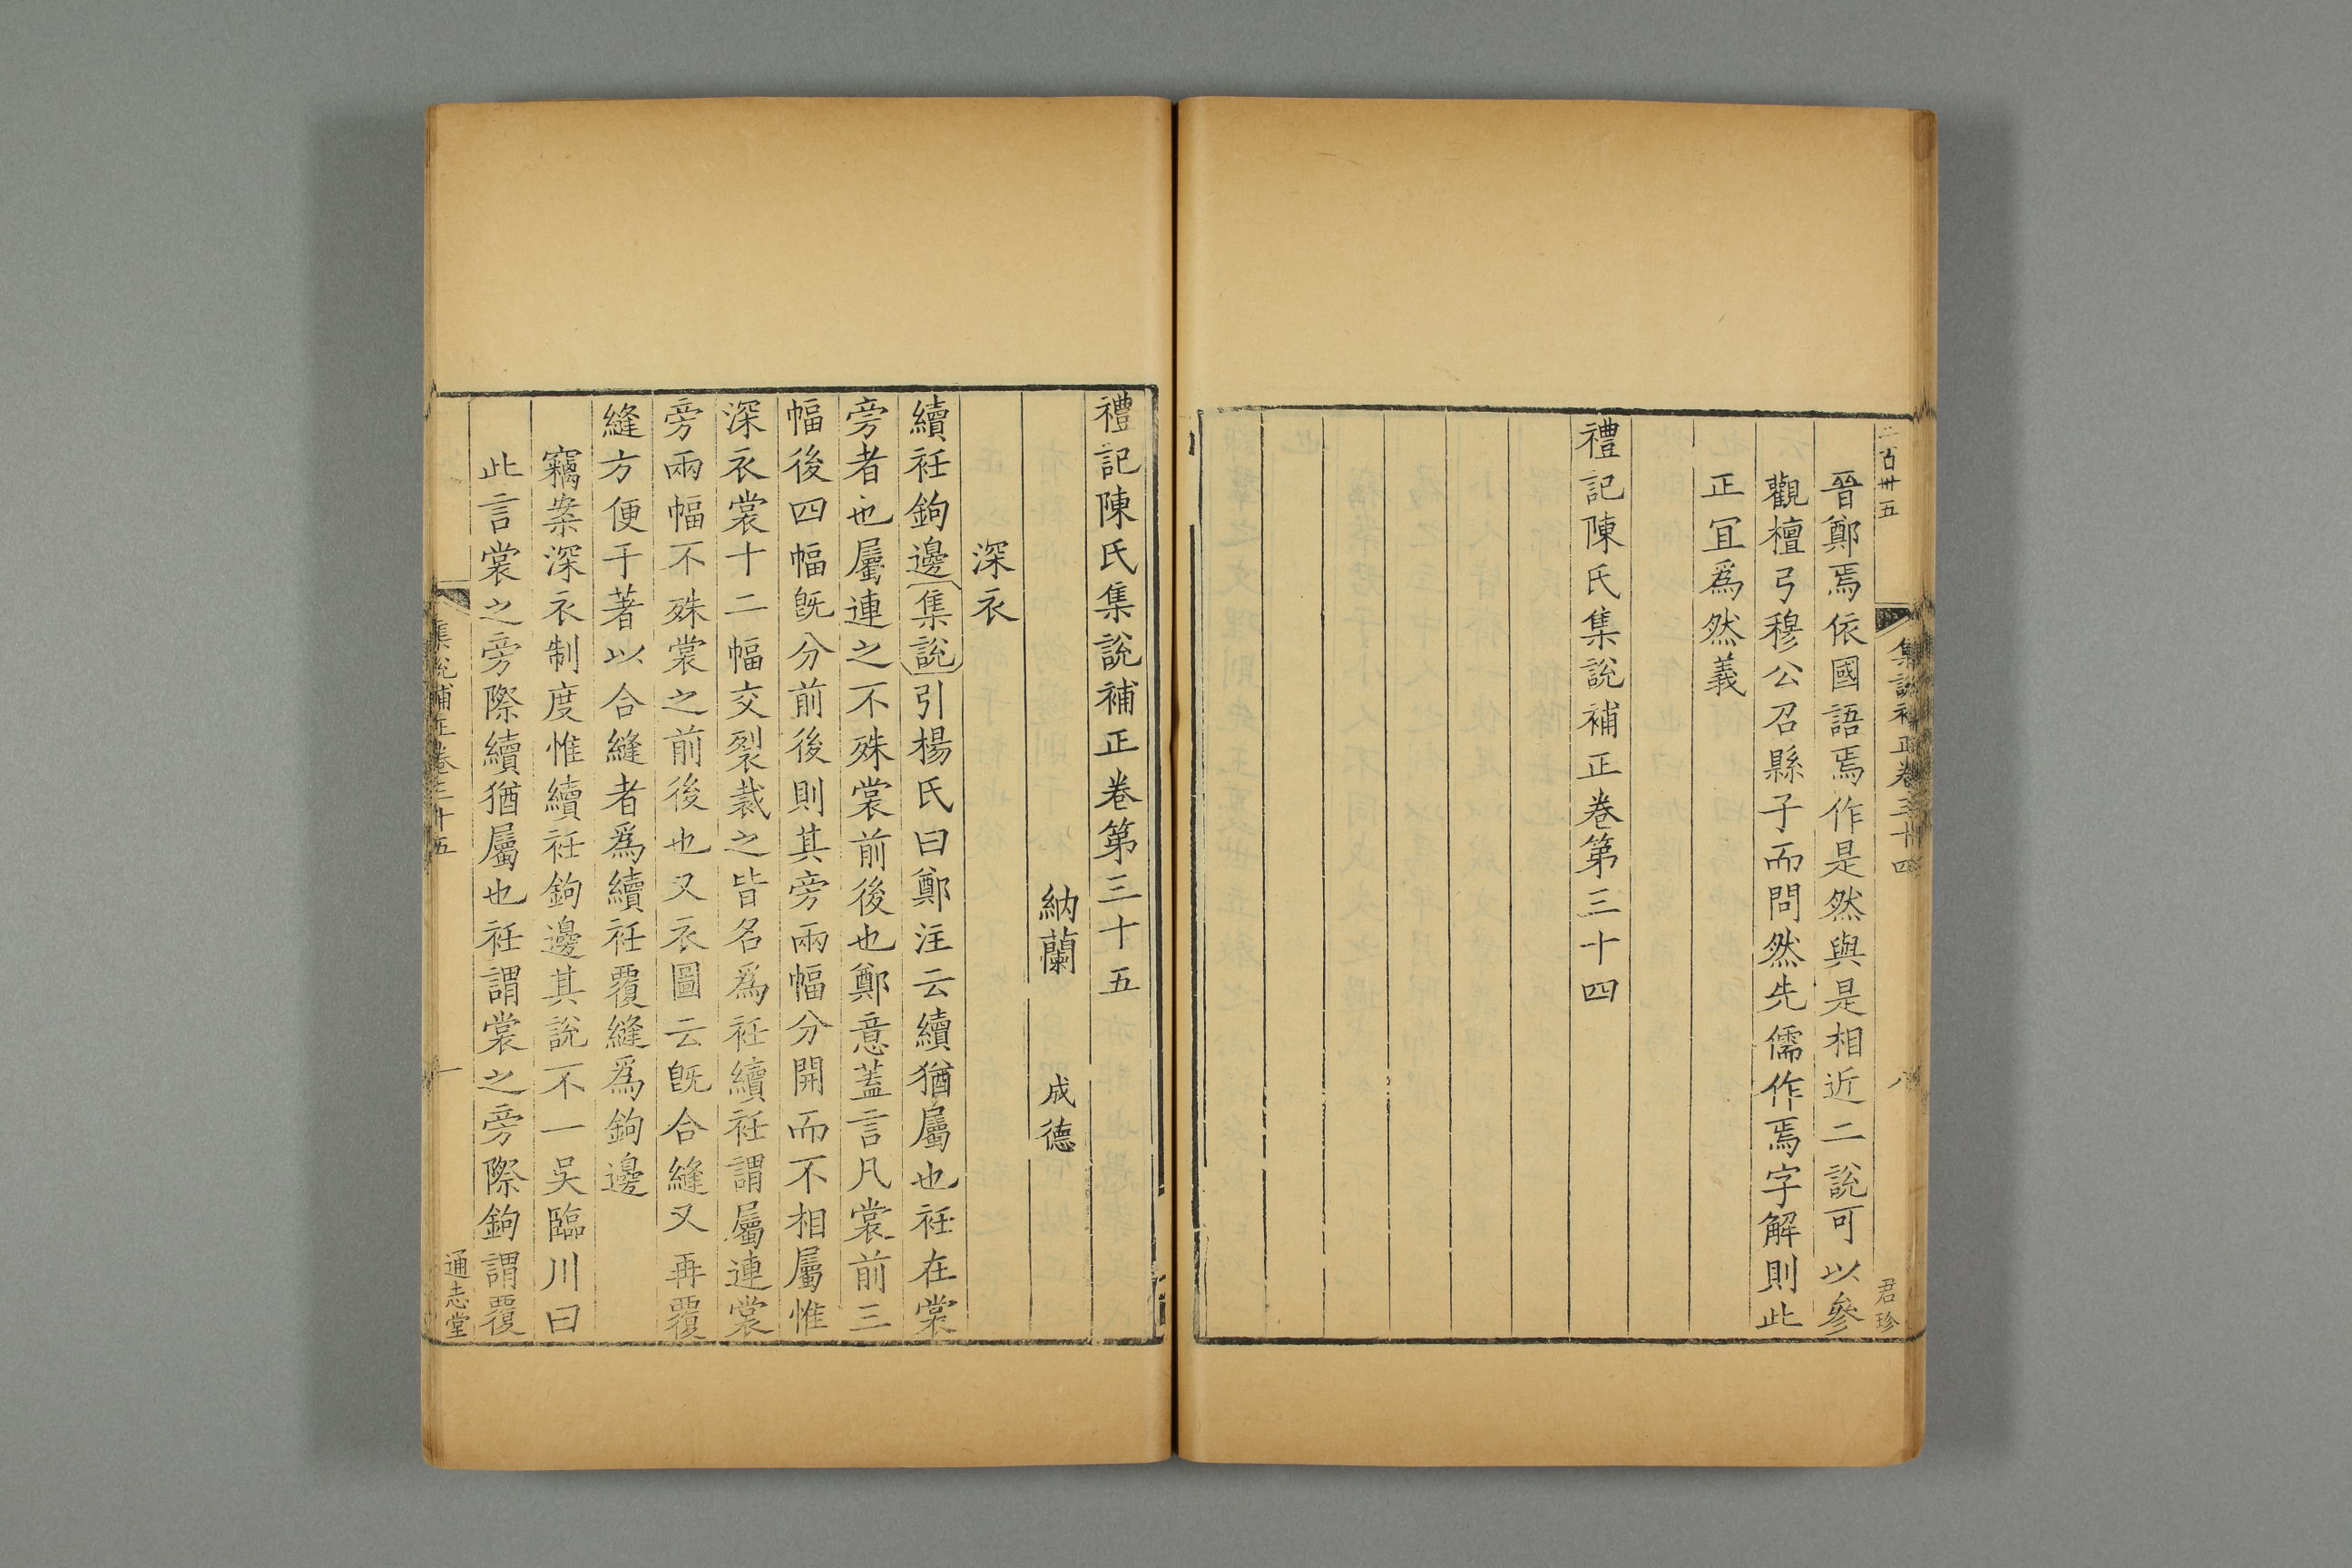 二百卅五
集說補正卷三十四
八
君珍
晉鄭焉依國語焉作是然與是相近二說可以參
觀檀弓穆公召縣子而問然先儒作焉字解則此
正冝爲然義
禮記陳氏集說補正卷第三十四
禮記陳氏集說補正卷第三十五
納蘭 成德
深衣
續衽鉤邊集說引楊氏曰鄭注云續猶屬也衽在裳
旁者也屬連之不殊裳前後也鄭意蓋言凡裳前三
幅後四幅旣分前後則其旁兩幅分開而不相屬惟
深衣裳十二幅交裂裁之皆名爲衽續衽謂屬連裳
旁兩幅不殊裳之前後也又衣圖云旣合縫又再覆
縫方便于著以合縫者爲續衽覆縫爲鉤邊
竊案深衣制度惟續衽鉤邊其說不一吳臨川曰
此言裳之旁際續猶屬也衽謂裳之旁際鉤謂覆
集說補正卷三十五
一
通志堂